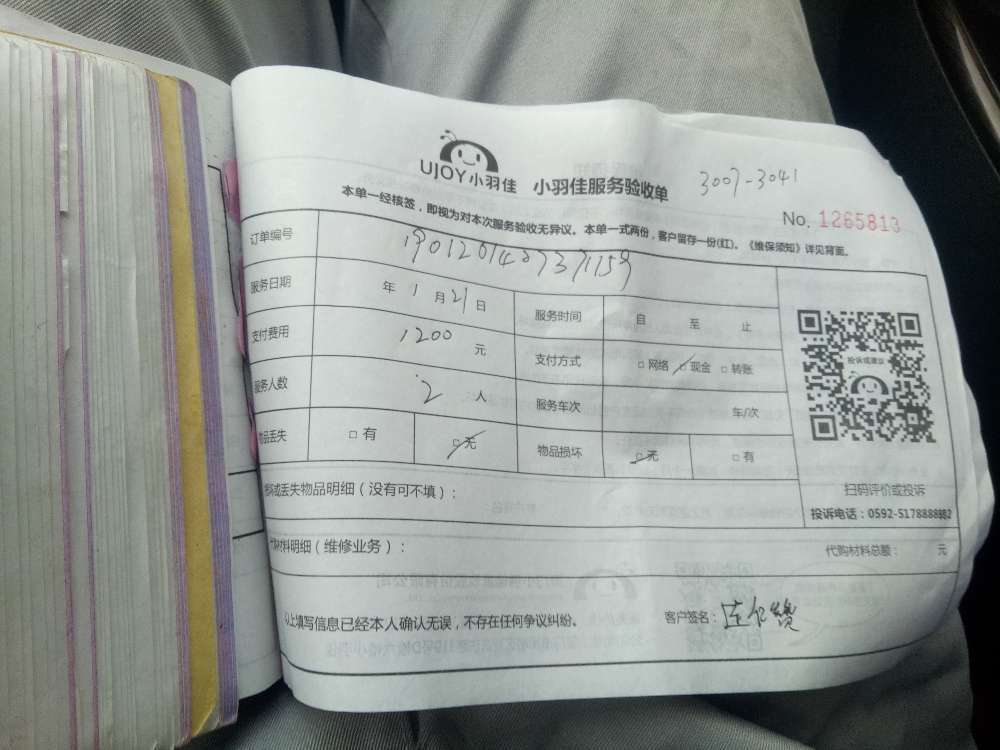 UJOY小羽佳 小羽佳服务验收单 3007-3041
No. 1265813
本单一经核签，即视为对本次服务验收无异议。本单一式两份，客户留存一份(红)。《维保须知》详见背面。
订单编号
服务日期 年 1 月 21 日 服务时间 自 至 止
支付费用 1200 元 支付方式 □ 网络 □ 现金 □ 转账
服务人数 2 人 服务车次 车/次
物品丢失 □ 有 □ 无 物品损坏 □ 无 □ 有
投诉或建议
扫码评价或投诉
投诉电话：0592-5178888
或丢失物品明细（没有可不填）：
材料明细（维修业务）： 代购材料总额： 元
以上填写信息已经本人确认无误，不存在任何争议纠纷。 客户签名：